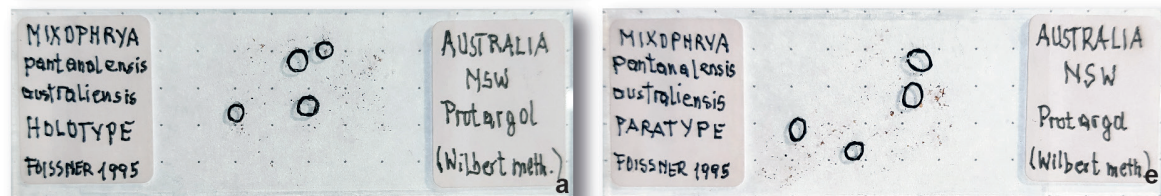 MIXOPHRYA
pantanalensis
australiensis
HOLOTYPE
FOISSNER 1995
AUSTRALIA
NSW
Protargol
(Wilbert meth.)
a
MIXOPHRYA
pantanalensis
australiensis
PARATYPE
FOISSNER 1995
AUSTRALIA
NSW
Protargol
(Wilbert meth.)
e